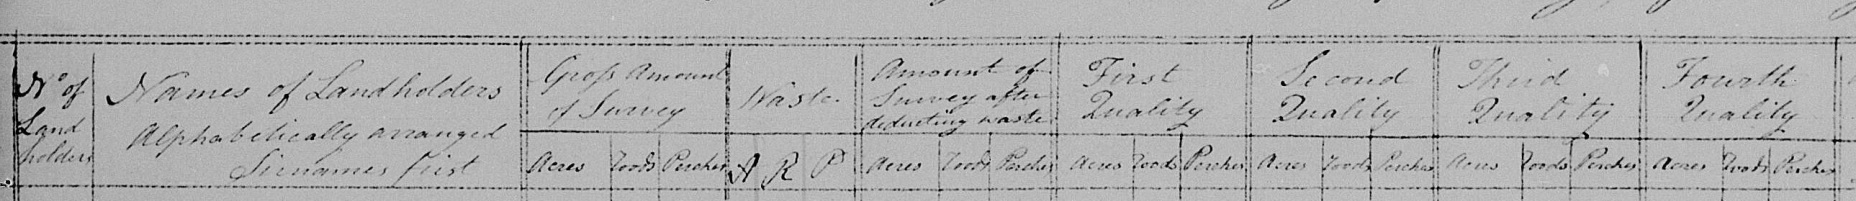 No of
Land
holders
Names of Landholders
Alphabetically arranged
Sirnames first
Gross Amount
of Survey
Acres Roods Perches
Waste
A R P
Amount of
Survey after
deducting waste
Acres Roods Perches
First
Quality
Acres Roods Perches
Second
Quality
Acres Roods Perches
Third
Quality
Acres Roods Perches
Fourth
Quality
Acres Roods Perches